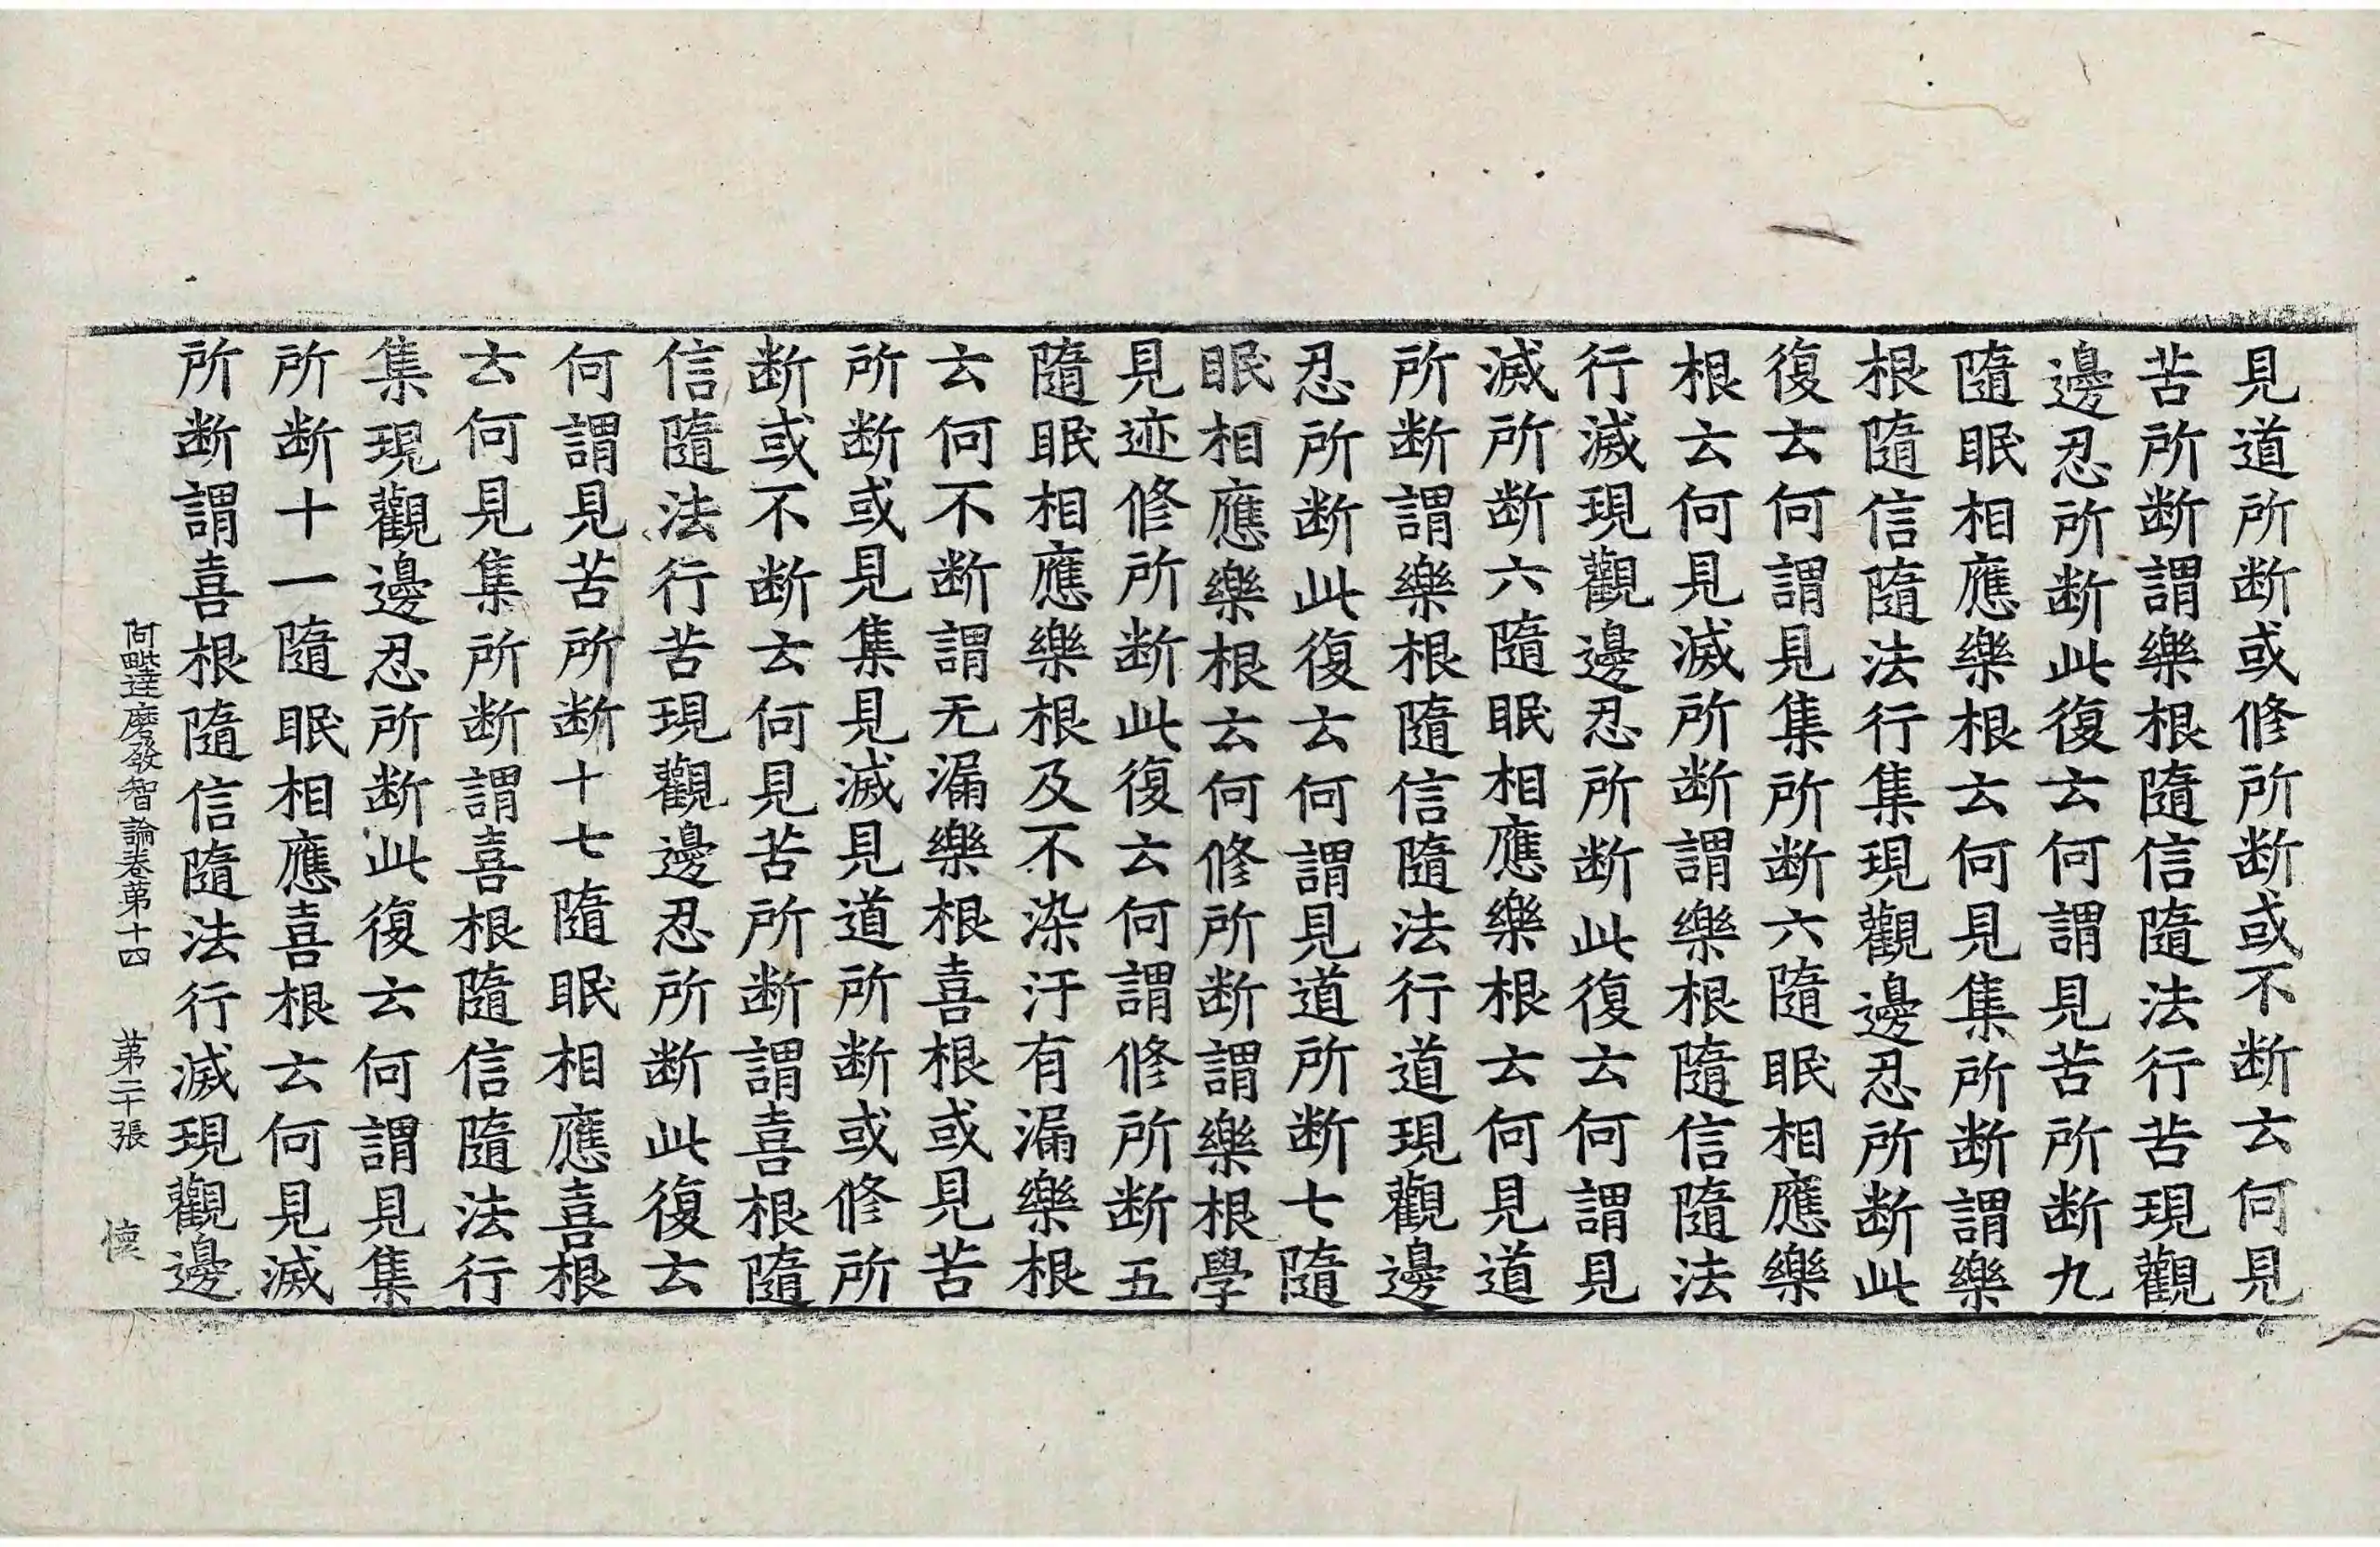 見道所断或修所断或不断云何見
苦所断謂樂根隨信隨法行苦現觀
邊忍所断此復云何謂見苦所断九
隨眠相應樂根云何見集所断謂樂
根隨信隨法行集現觀邊忍所断此
復云何謂見集所断六隨眠相應樂
根云何見滅所断謂樂根隨信隨法
行滅現觀邊忍所断此復云何謂見
滅所断六隨眠相應樂根云何見道
所断謂樂根隨信隨法行道現觀邊
忍所断此復云何謂見道所断七隨
眠相應樂根云何修所断謂樂根學
見迹修所断此復云何謂修所断五
隨眠相應樂根及不染汙有漏樂根
云何不断謂无漏樂根喜根或見苦
所断或見集見滅見道所断或修所
断或不断云何見苦所断謂喜根隨
信隨法行苦現觀邊忍所断此復云
何謂見苦所断十七隨眠相應喜根
云何見集所断謂喜根隨信隨法行
集現觀邊忍所断此復云何謂見集
所断十一隨眠相應喜根云何見滅
所断謂喜根隨信隨法行滅現觀邊
阿毗達磨發智論卷苐十四 苐二十張 懷